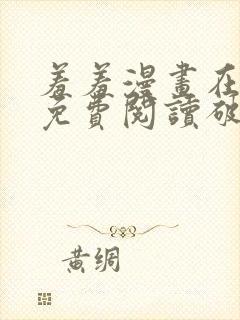 羞羞漫畫在
免費閱讀破
黃綢